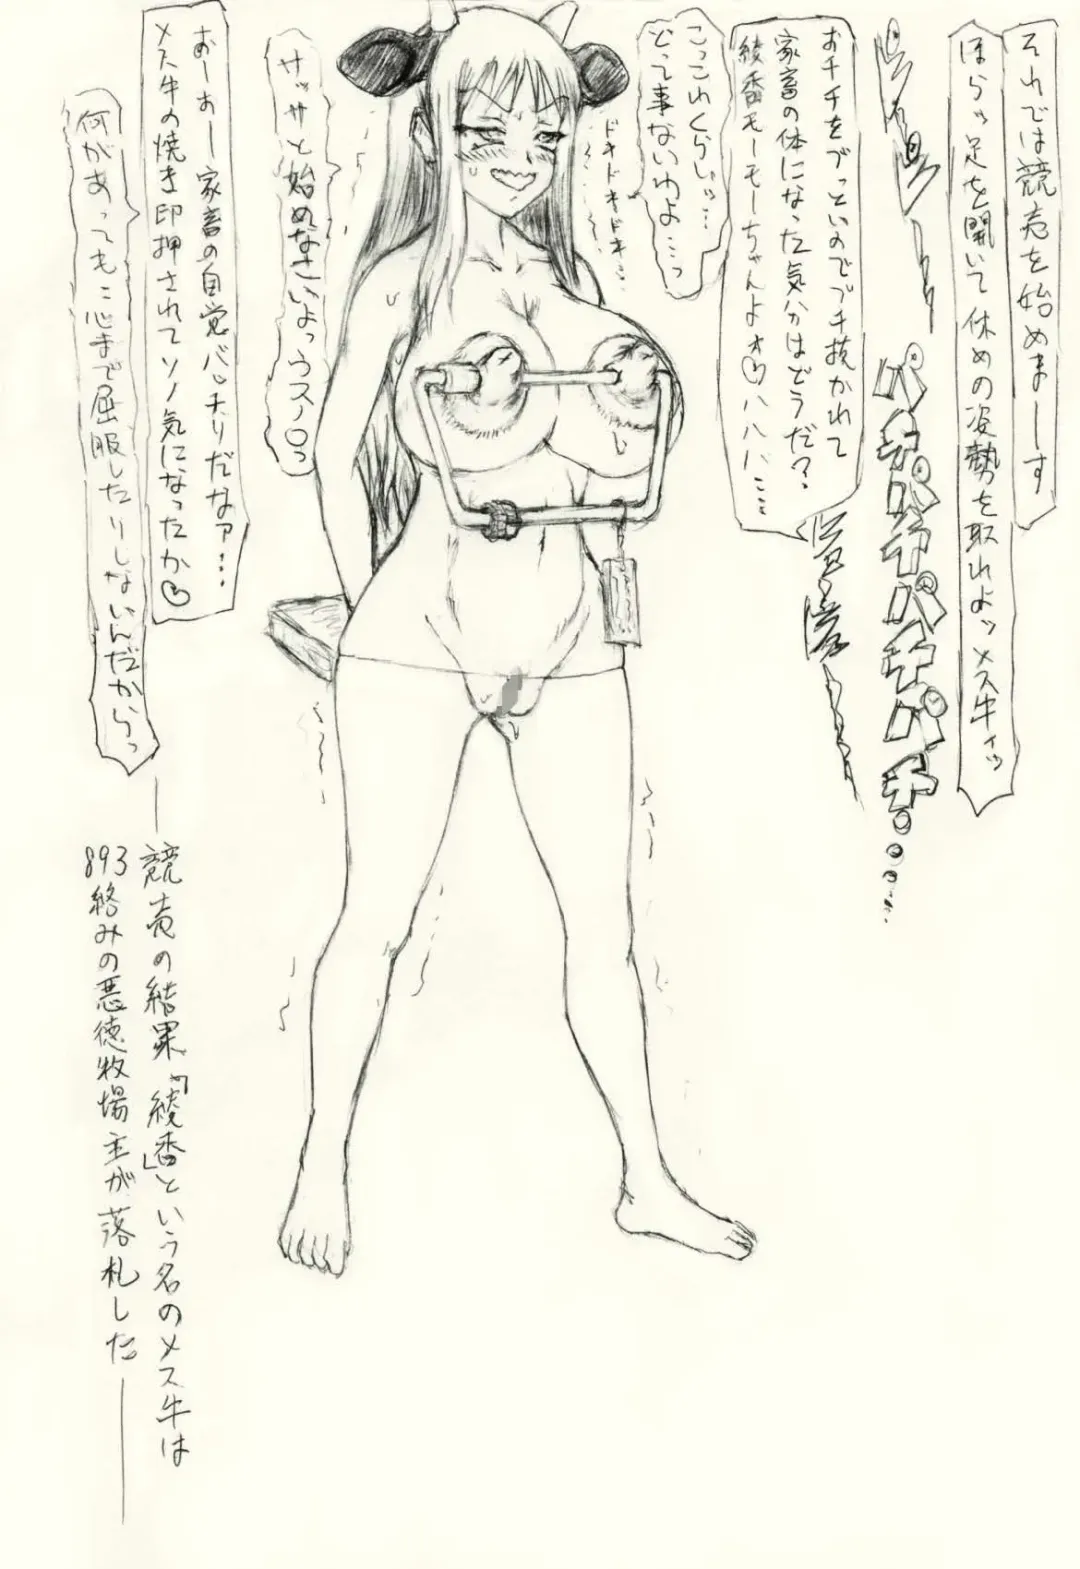 それでは競売を始めまーーす
ほらッ足を開いて休めの姿勢を取れよッメス牛ィッ
パチパチパチパチパチ
おチチをブっといのでブチ抜かれて
家畜の体になった気分はどうだ?
綾香モーモーちゃんよォ♡ハハハ…
こっこれくらいっ…
どって事ないわよ…っ
ドキドキドキドキ…
サッサと始めなさいよっウスノロっ
おーおー家畜の自覚バッチリだなァ…
メス牛の焼き印押されてソノ気になったか♡
何があっても心まで屈服したりしないんだからっ
――競売の結果『綾香』という名のメス牛は
893絡みの悪徳牧場主が落札した――